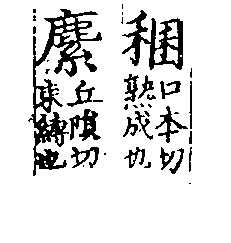 稇
口本切
熟成也
丘隕切
束縛也